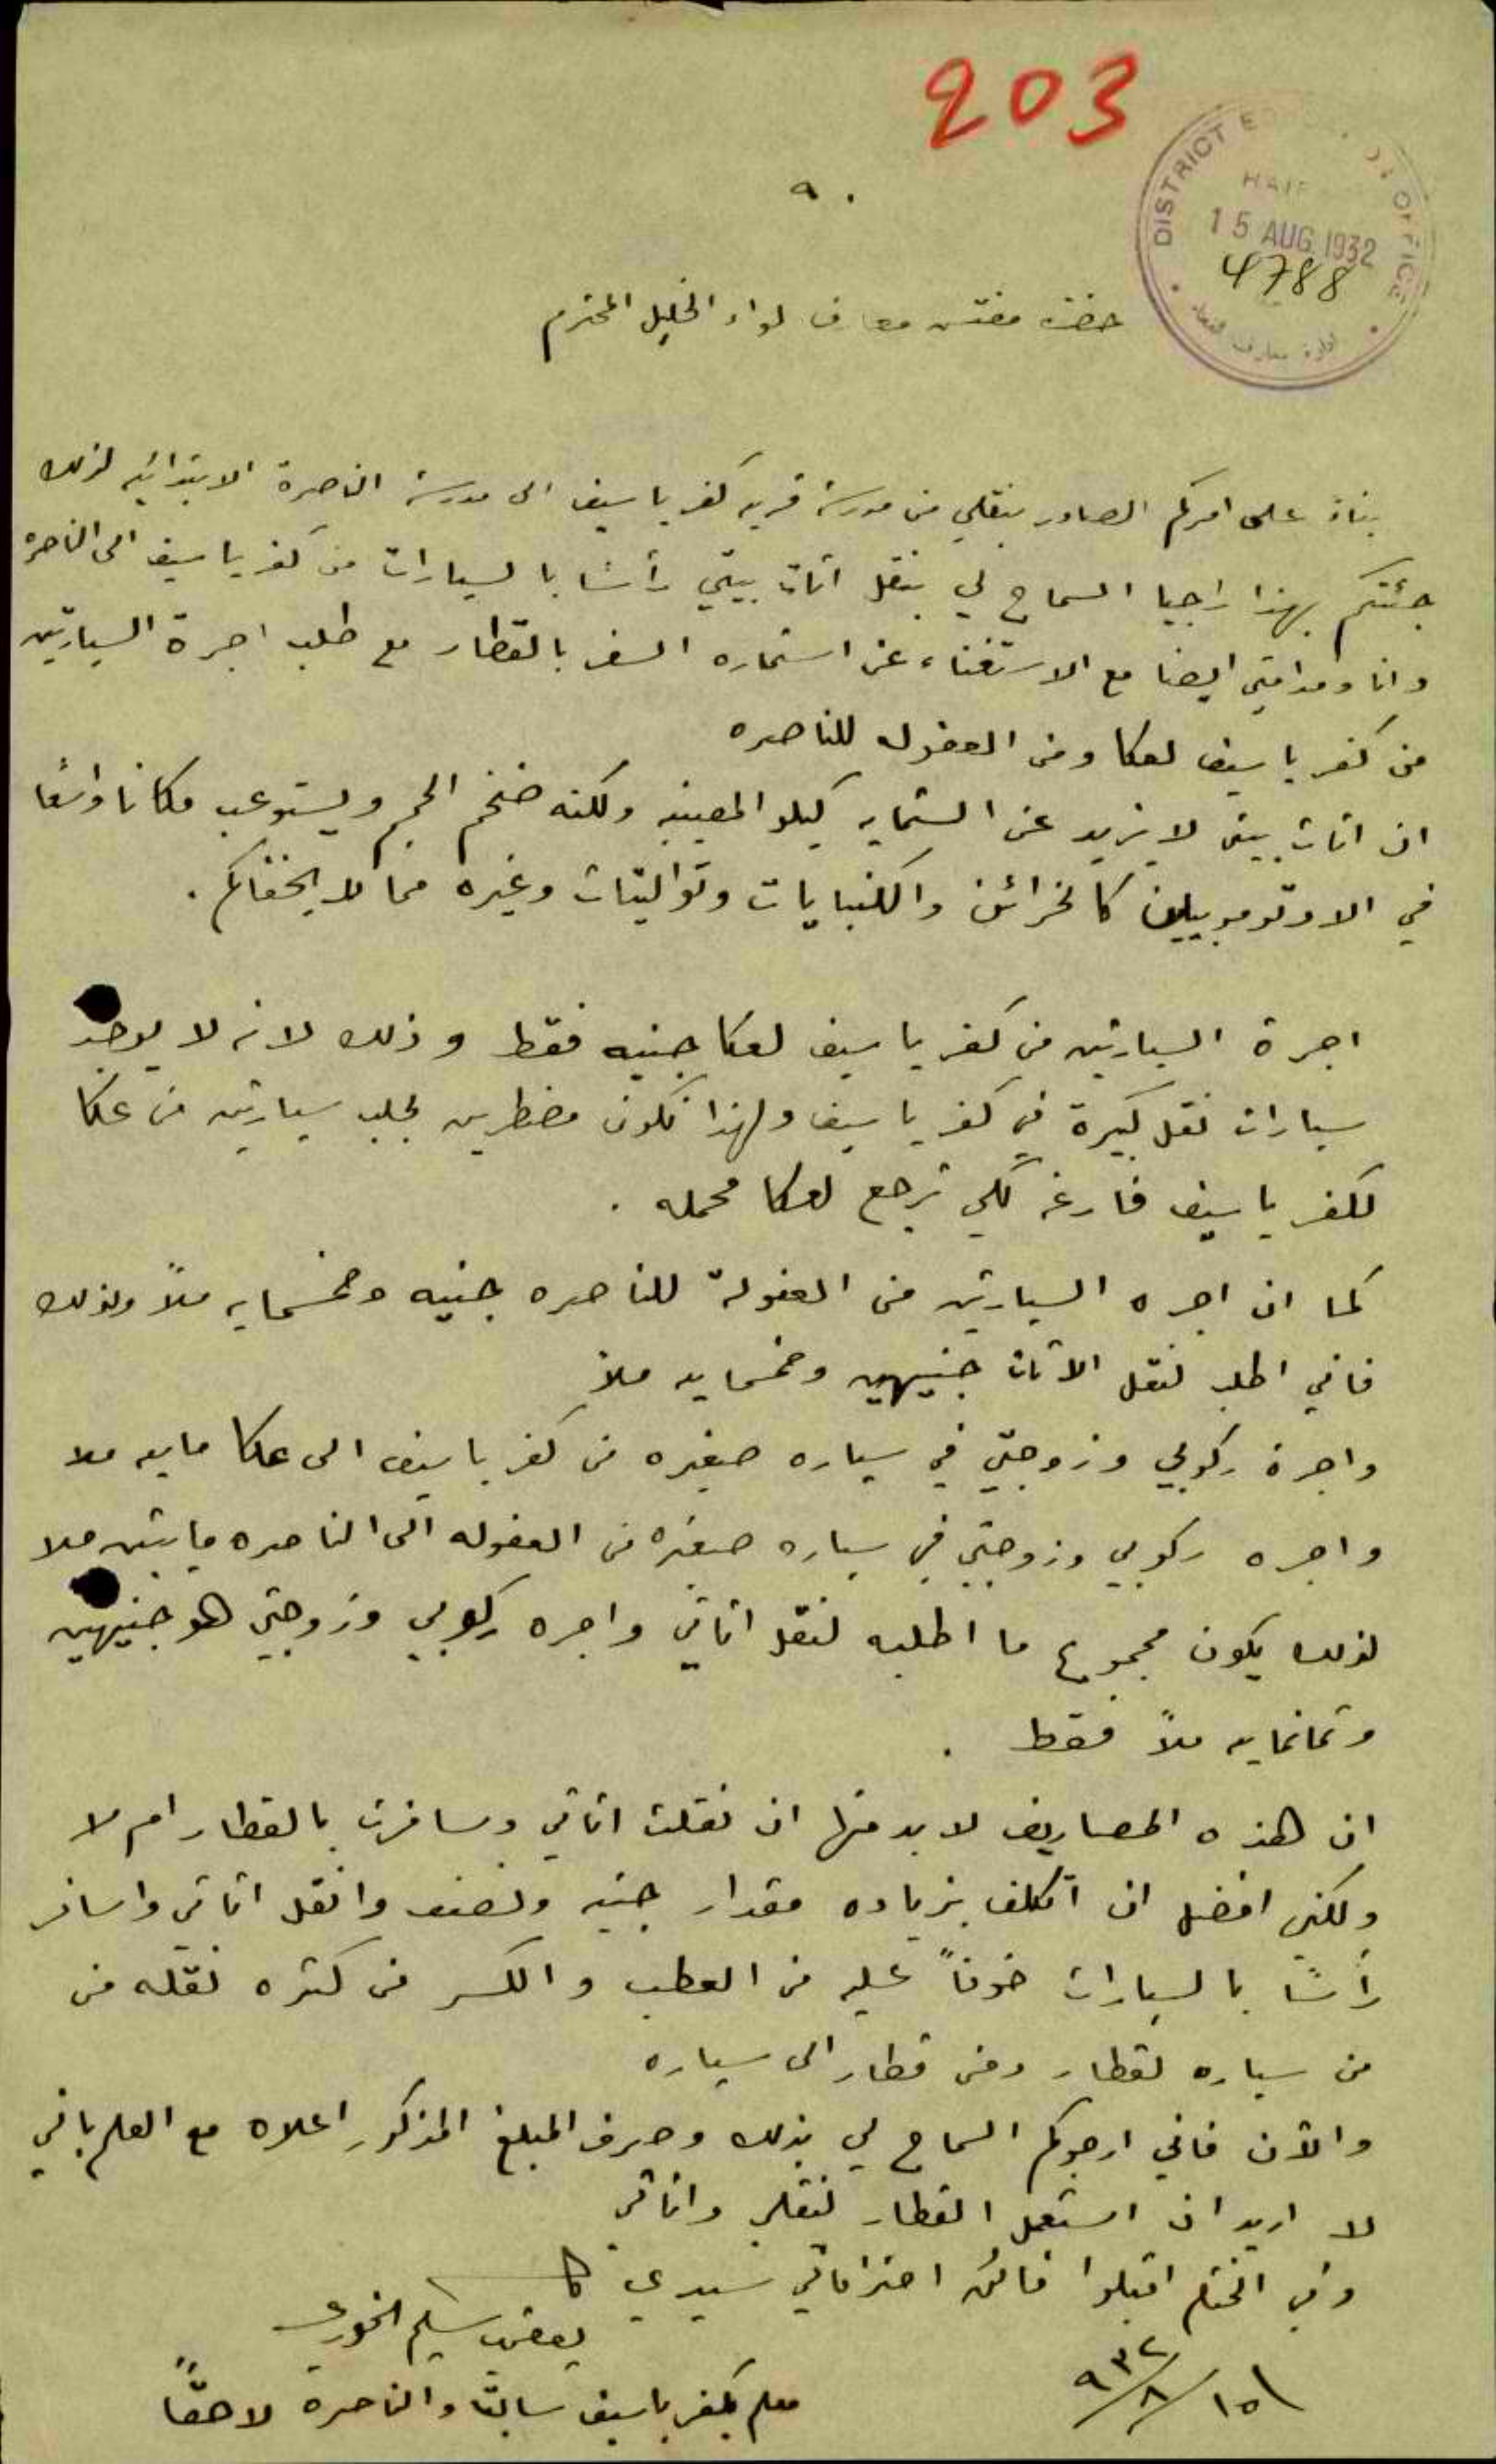 203
٩٠
DISTRICT E OFFICE
HAIF
15 AUG 1932
4788
ادارة معارف
حضرة مفتش معارف لواء الجليل المحترم
بناءً على امركم الصادر بنقلي من مدرسة قرية كفر ياسيف الى مدرسة الناصرة الابتدائيه لذلك
جئتكم بهذا راجيا السماح لي بنقل اثاث بيتي رأسًا بالسيارات من كفر ياسيف الى الناصرة
وانا ومدامتي ايضا مع الاستغناء عن استماره السفر بالقطار مع طلب اجرة السيارتين
من كفر ياسيف لعكا ومن العفوله للناصره
ان اثاث بيتي لا يزيد عن الستمايه كيلو المعينه ولكنه ضخم الحجم ويستوعب مكانا واسعًا
في الاوتوموبيلين كالخزائن والكنبايات وتواليتات وغيره مما لا يخفاكم.
اجرة السيارتين من كفر ياسيف لعكا جنيه فقط وذلك لانه لا يوجد
سيارات نقل كبيرة في كفر ياسيف ولهذا نكون مضطرين لجلب سيارتين من عكا
لكفر ياسيف فارغه لكي ترجع لعكا محمله.
كما ان اجره السيارتين من العفولة للناصره جنيه وخمسمايه ملاً ولذلك
فاني اطلب لنقل الاثاث جنيهين وخمسمايه ملاً
واجرة ركوبي وزوجتي في سياره صغيره من كفر ياسيف الى عكا مايه ملا
واجره ركوبي وزوجتي في سياره صغيره من العفوله الى الناصره مايتين ملا
لذلك يكون مجموع ما اطلبه لنقل اثاثي واجره ركوبي وزوجتي هو جنيهين
وثمانمايه ملاً فقط.
ان هذه المصاريف لا بد منها ان نقلت اثاثي وسافرت بالقطار ام لا
ولكني افضل ان اتكلف بزياده مقدار جنيه ونصف وانقل اثاثي واسافر
رأسًا بالسيارات خوفاً عليه من العطب والكسر من كثره نقله من
من سياره لقطار ومن قطار الى سياره
والآن فاني ارجوكم السماح لي بذلك وصرف المبلغ المذكور اعلاه مع العلم باني
لا اريد ان استعمل القطار لنقلي واثاثي
وفي الختام اقبلوا فائق احتراماتي سيدي
يعقوب سليم الخوري
معلم بكفر ياسيف سابقًا والناصرة لاحقًا
١٥/٨/٩٣٢